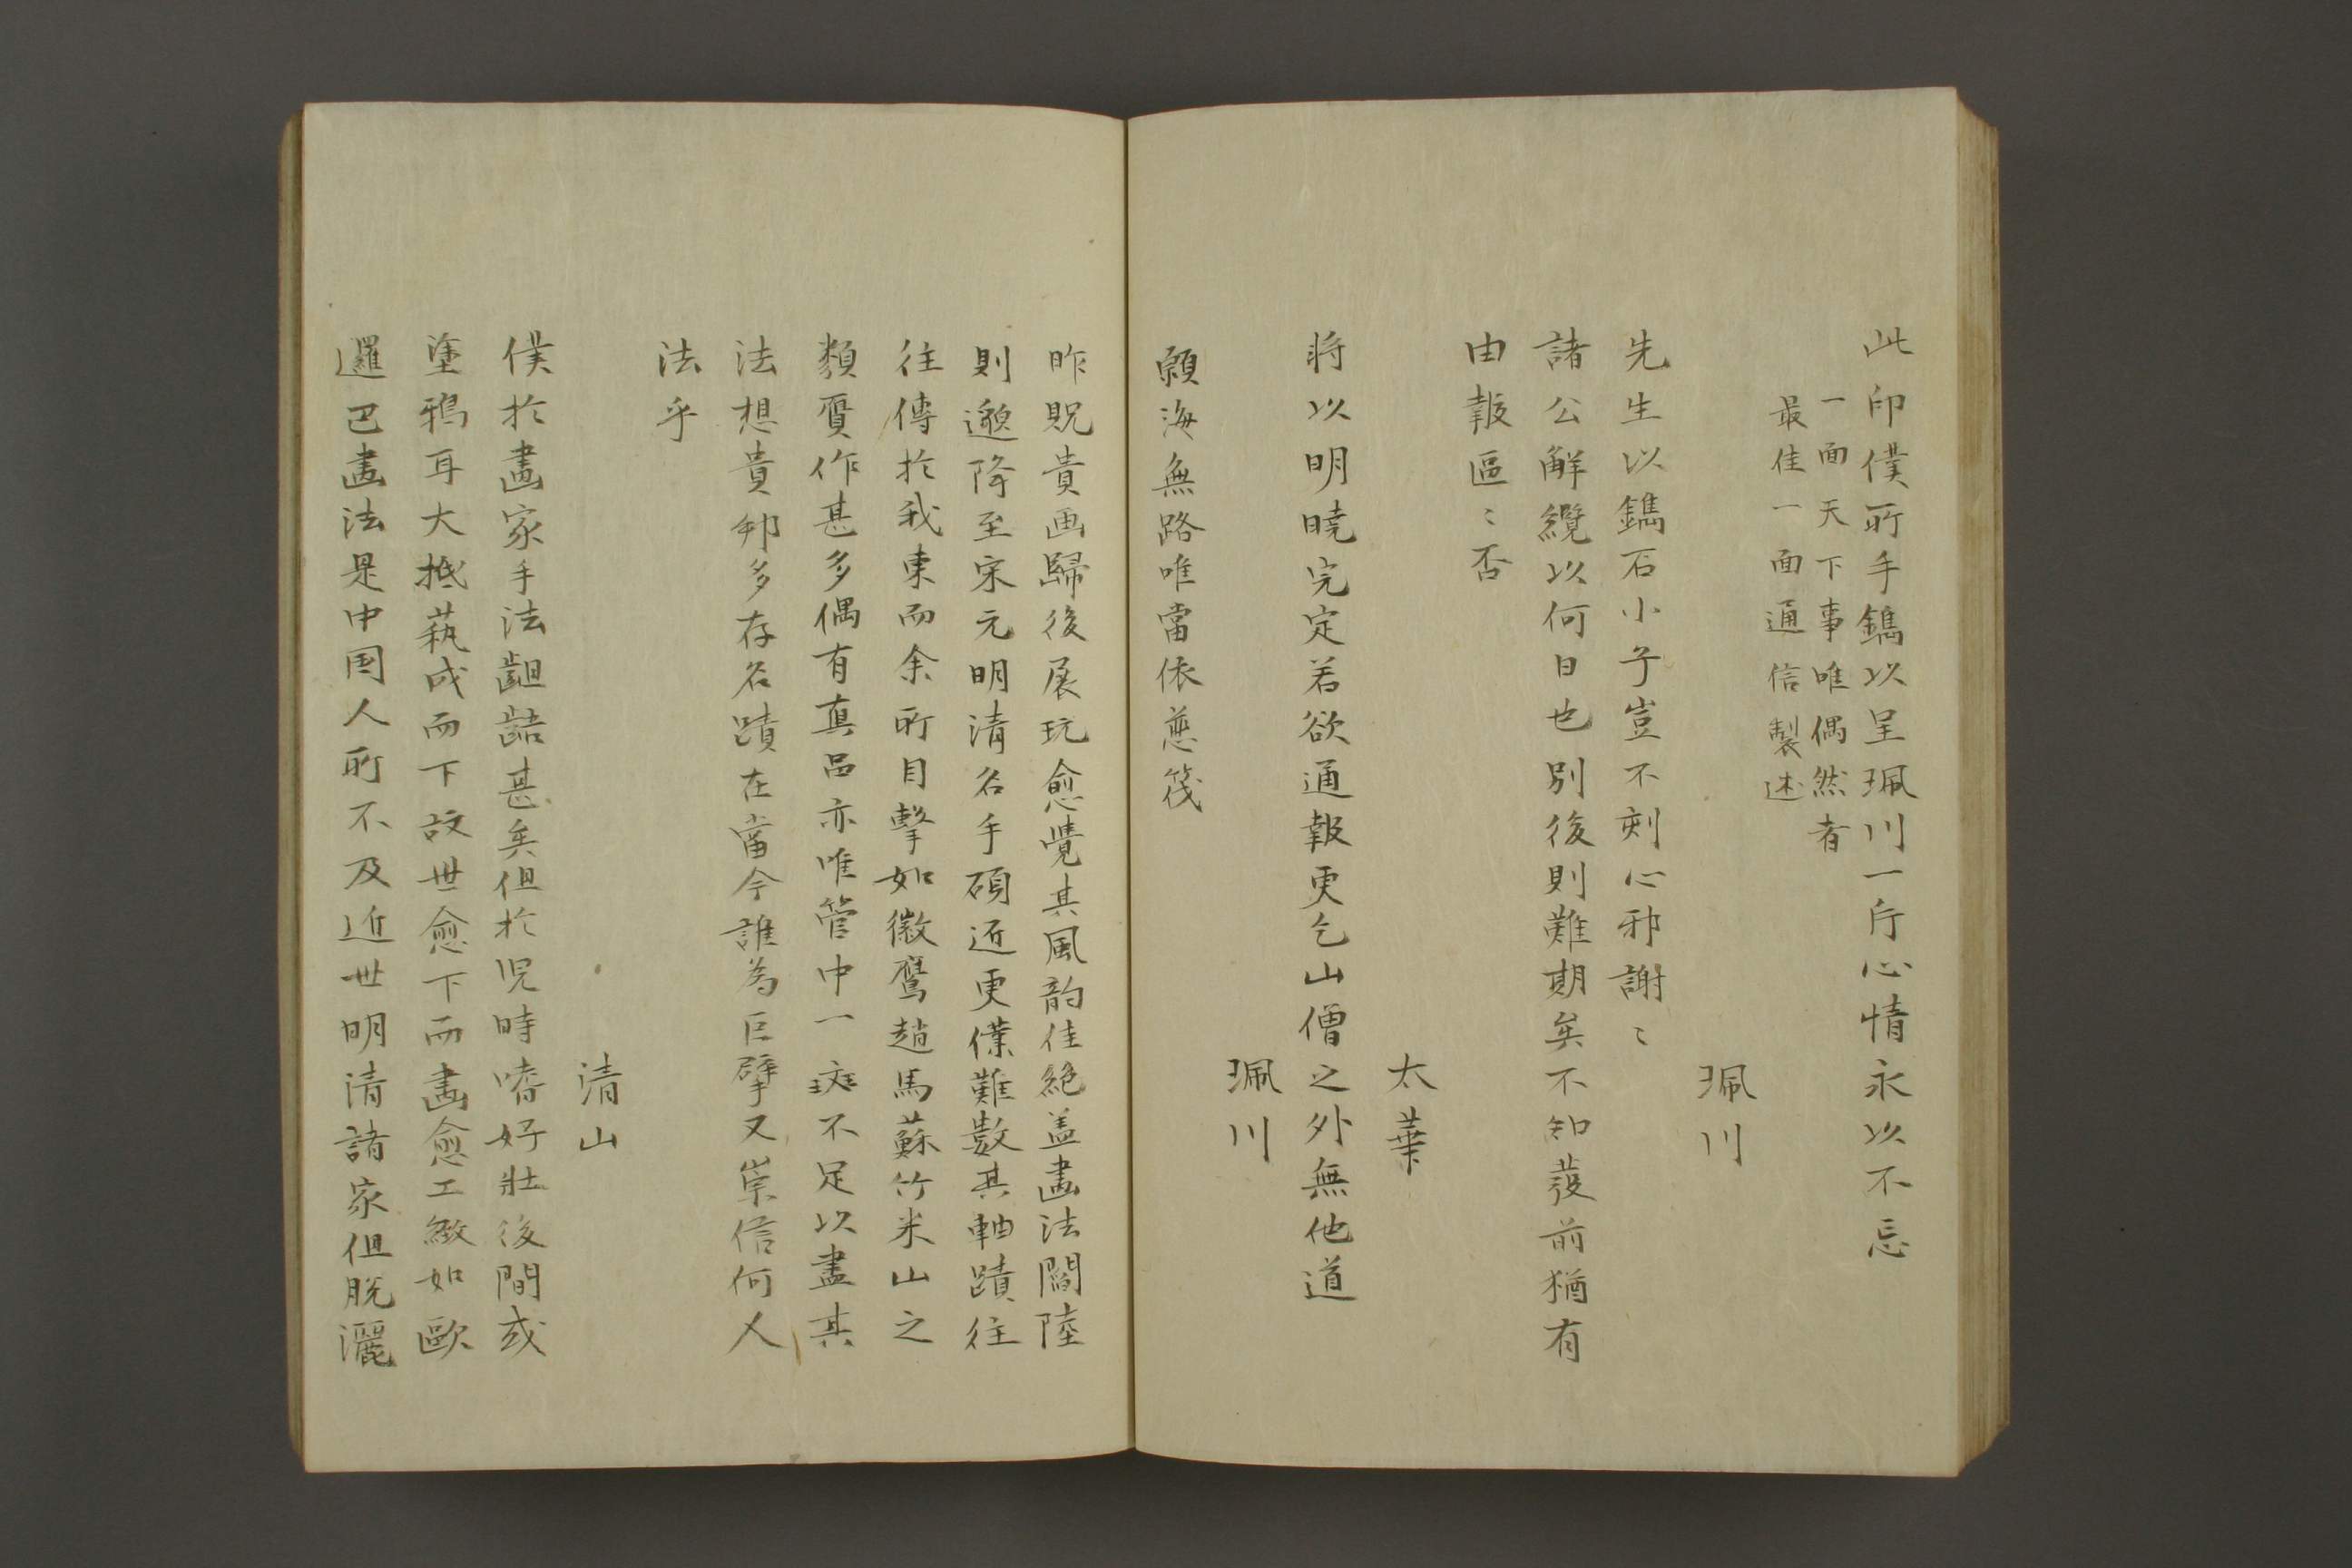 此印僕所手鐫以呈珮川一片心情永以不忘
一面天下事唯偶然者
最佳一面通信製述
珮川
先生以鐫石小子豈不刻心邪謝〻
諸公解纜以何日也別後則難期矣不知發前猶有
由報區〻否
太華
將以明曉完定若欲通報更乞山僧之外無他道
珮川
願海無路唯當依慈筏
昨貺貴画歸後展玩愈覺其風韵佳絕盖畫法閻陸
則邈降至宋元明清名手碩近更僕難數其軸蹟往
往傳於我東而余所目擊如徽鷹趙馬蘇竹米山之
類贗作甚多偶有真品亦唯管中一斑不足以盡其
法想貴邦多存名蹟在當今誰為巨擘又崇信何人
法乎
清山
僕於畫家手法齟齬甚矣但於児時嗜好壯後間或
塗鴉耳大抵蓺成而下故世愈下而畫愈工緻如歐
邏巴畫法是中国人所不及近世明清諸家但脫灑